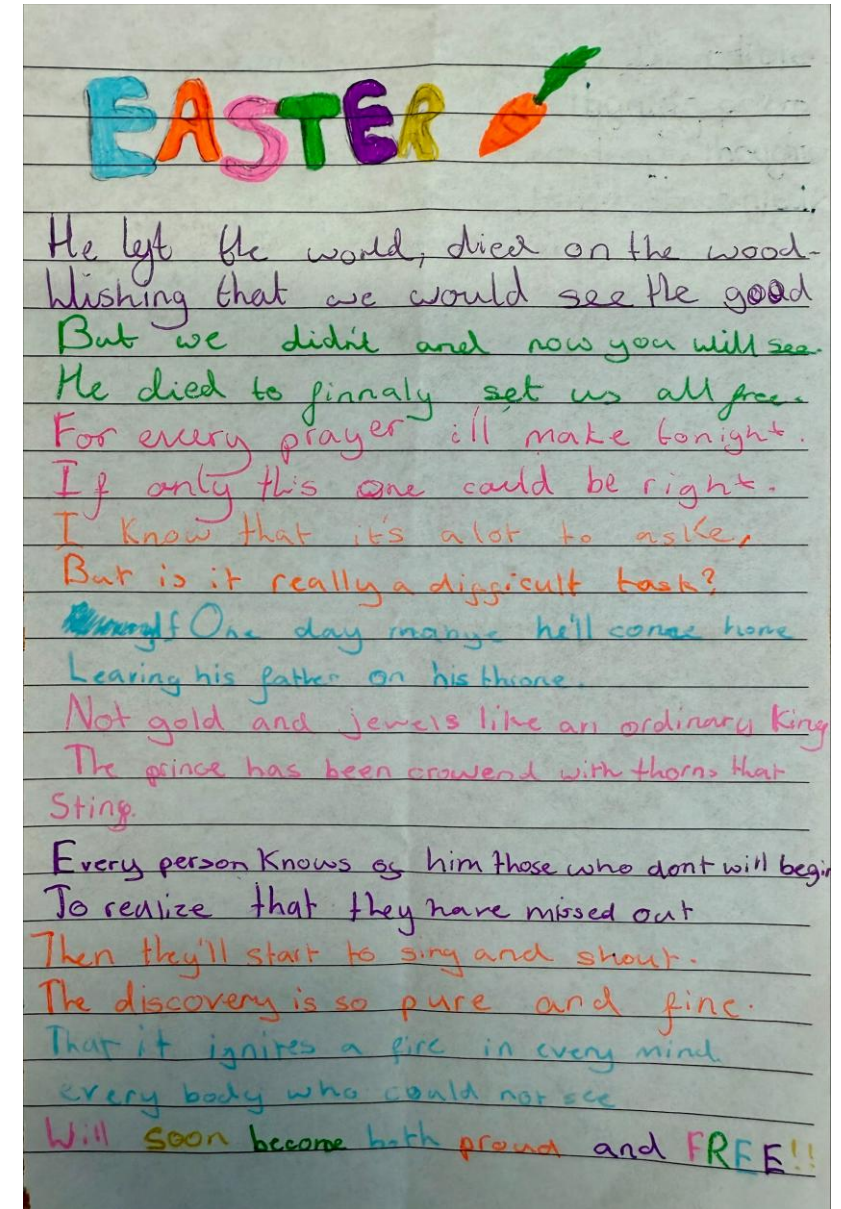 EASTER
He left the world, died on the wood-
Wishing that we would see the good
But we didn't and now you will see.
He died to finnaly set us all free.
For every prayer i'll make tonight.
If only this one could be right.
I know that it's alot to aske,
But is it really a difficult task?
One day mabye he'll come home
Leaving his father on his throne.
Not gold and jewels like an ordinary King
The prince has been crowend with thorns that
Sting.
Every person knows of him those who dont will begin
To realize that they have missed out
Then they'll start to sing and shout.
The discovery is so pure and fine.
That it ignites a fire in every mind.
every body who could not see
Will soon become both proud and FREE!!